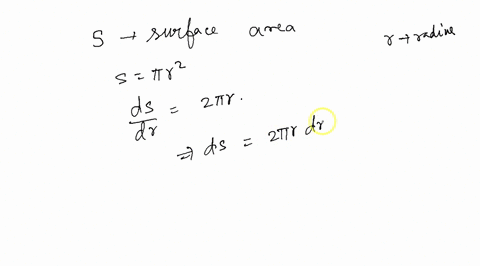 S → surface area
r → radine
s = πr²
ds/dr = 2πr.
⇒ ds = 2πr dr